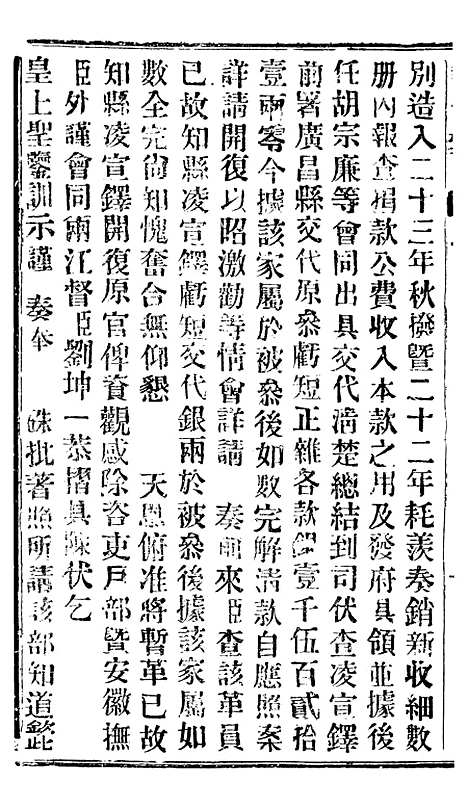 別造入二十三年秋撥暨二十二年耗羡奏銷新收細數
册內報查捐款公費收入本款之用及發府具領並據後
任胡宗廉等會同出具交代淸楚總結到司伏查凌宣鐸
前署廣昌縣交代原叅虧短正雜各款銀壹千伍百貳拾
壹兩零今據該家屬於被叅後如數完解淸款自應照案
詳請開復以昭激勸等情會詳請　奏前來臣查該革員
已故知縣凌宣鐸虧短交代銀兩於被叅後據該家屬如
數全完尙知愧奮合無仰懇　天恩俯准將暫革已故
知縣凌宣鐸開復原官俾資觀感除咨吏戶部暨安徽撫
臣外謹會同兩江督臣劉坤一恭摺具陳伏乞
皇上聖鑒訓示謹　奏奉　硃批著照所請該部知道欽